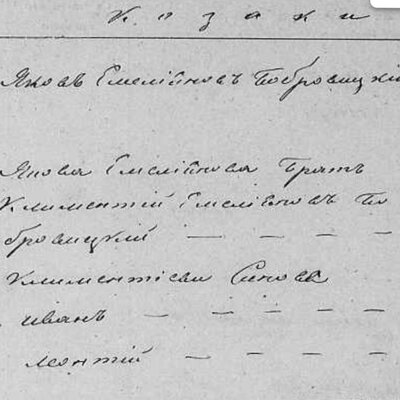 Козаки
Яковъ Емелiяновъ Бобровицкiй
Якова Емелiянова Братъ
Климентiй Емелiяновъ Бо
бровицкiй — — — —
Климентiевы Сыновя
Иванъ — — — — —
Леонтiй — — — —